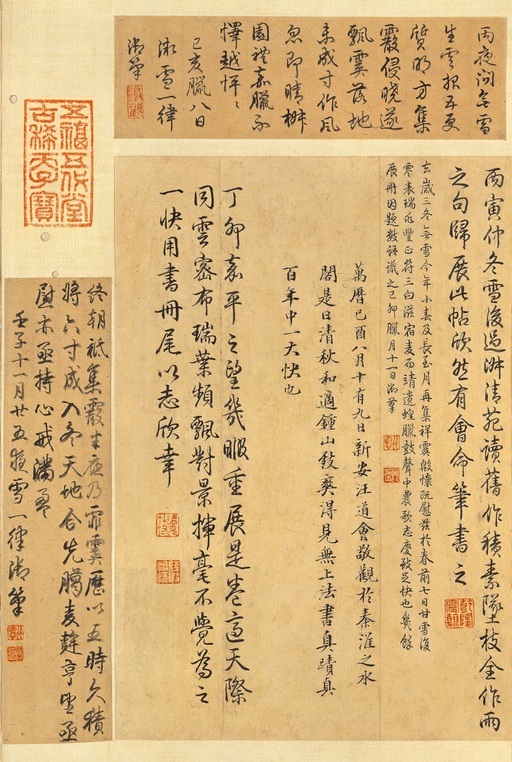 丙夜问無雪
生雲報五更
質明方集
霰侵曉遂
飄霙落地
未成寸作風
忽即晴辦
園禮嘉臘不
懌越惺〻
己亥臘八日
微雪一律
御筆
五福五代堂
古稀天子寶
丙寅仲冬雪後過淑清苑讀舊作積素墜枝全作雨
之句歸展此帖欣然有會命筆書之
乾隆
宸翰
玄歲三冬無雪今年小春及長至月再集祥霙慇懷既慰茲於春前七日甘雪復
霑表瑞兆豐正符三白滋宿麥而靖遺蝗臘鼓聲中農歌志慶致足快也幾餘
展冊因題數語識之己卯臘月十一日御筆
萬曆己酉八月十有九日新安汪道會敬觀於秦淮之水
閣是日清秋和適鍾山致爽得見無上法書真蹟真
百年中一大快也
丁卯嘉平之望幾暇重展是卷適天際
同雲密布瑞葉頻飄對景揮毫不覺為之
一快用書冊尾以志欣幸
終朝祗集霰半夜乃霏霙歷以五時久積
將六寸成入冬天地合先臘麥麰亨望亟
慰亦亟持心戒滿盈
壬子十一月廿五夜雪一律御筆